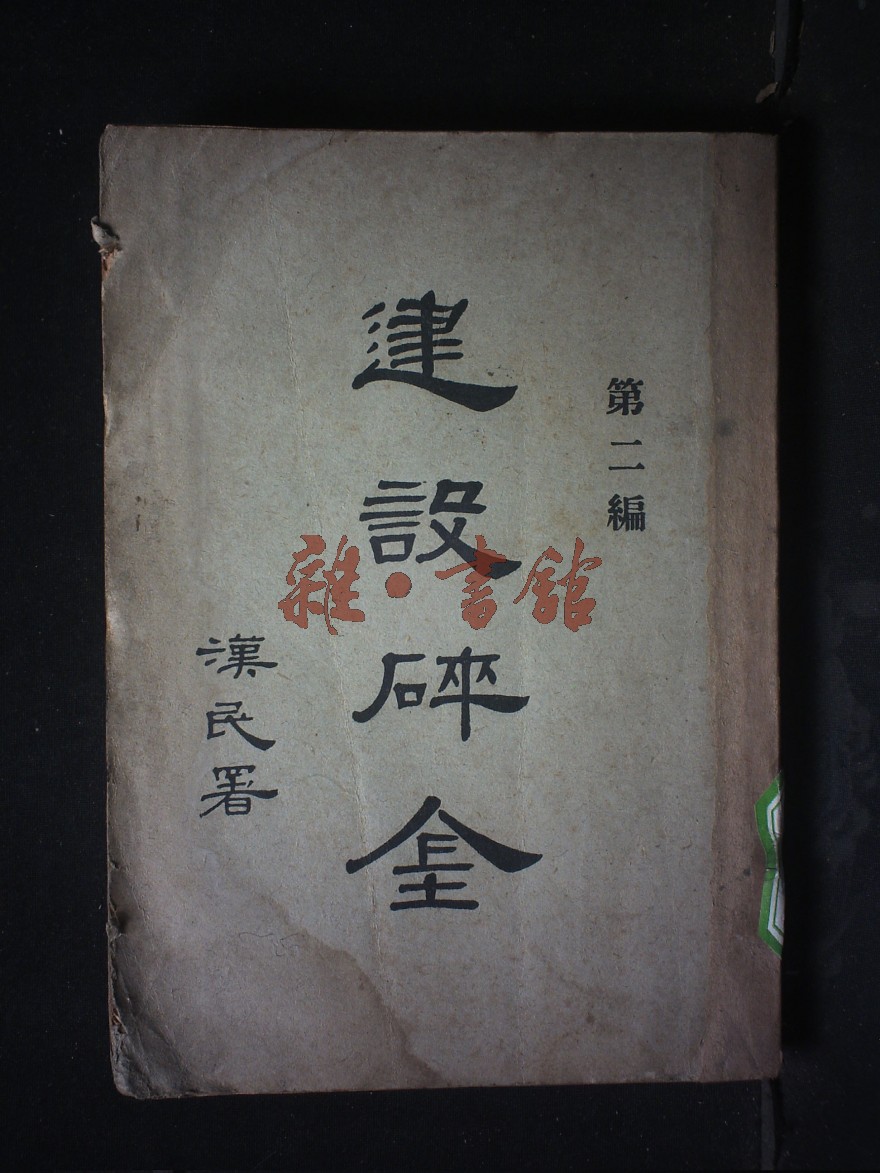 第二編
建設碎金
漢民署
雜·書館